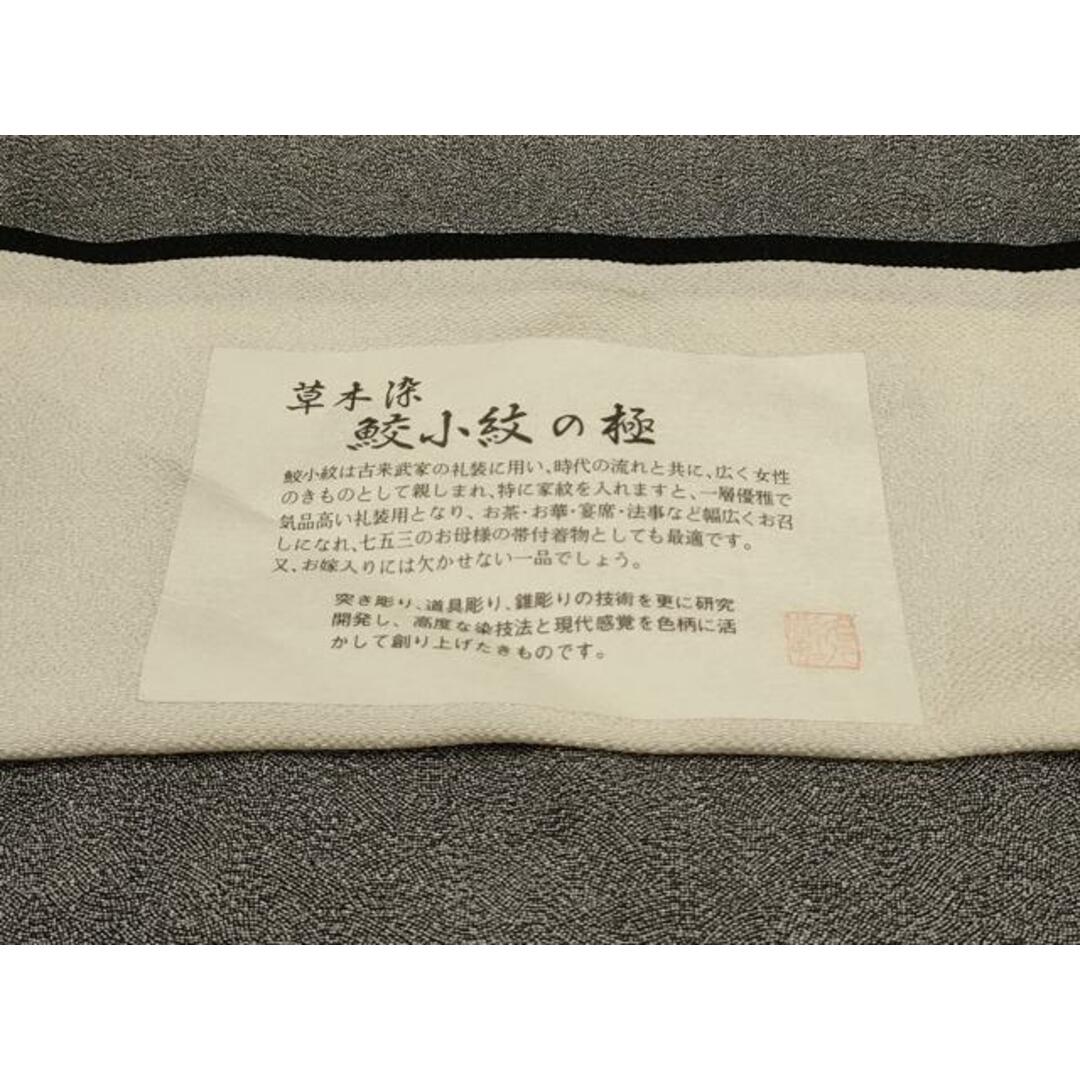 草木染
鮫小紋の極
鮫小紋は古来武家の礼装に用い、時代の流れと共に、広く女性
のきものとして親しまれ、特に家紋を入れますと、一層優雅で
気品高い礼装用となり、お茶・お華・宴席・法事など幅広くお召
しになれ、七五三のお母様の帯付着物としても最適です。
又、お嫁入りには欠かせない一品でしょう。
突き彫り、道具彫り、錐彫りの技術を更に研究
開発し、高度な染技法と現代感覚を色柄に活
かして創り上げたきものです。